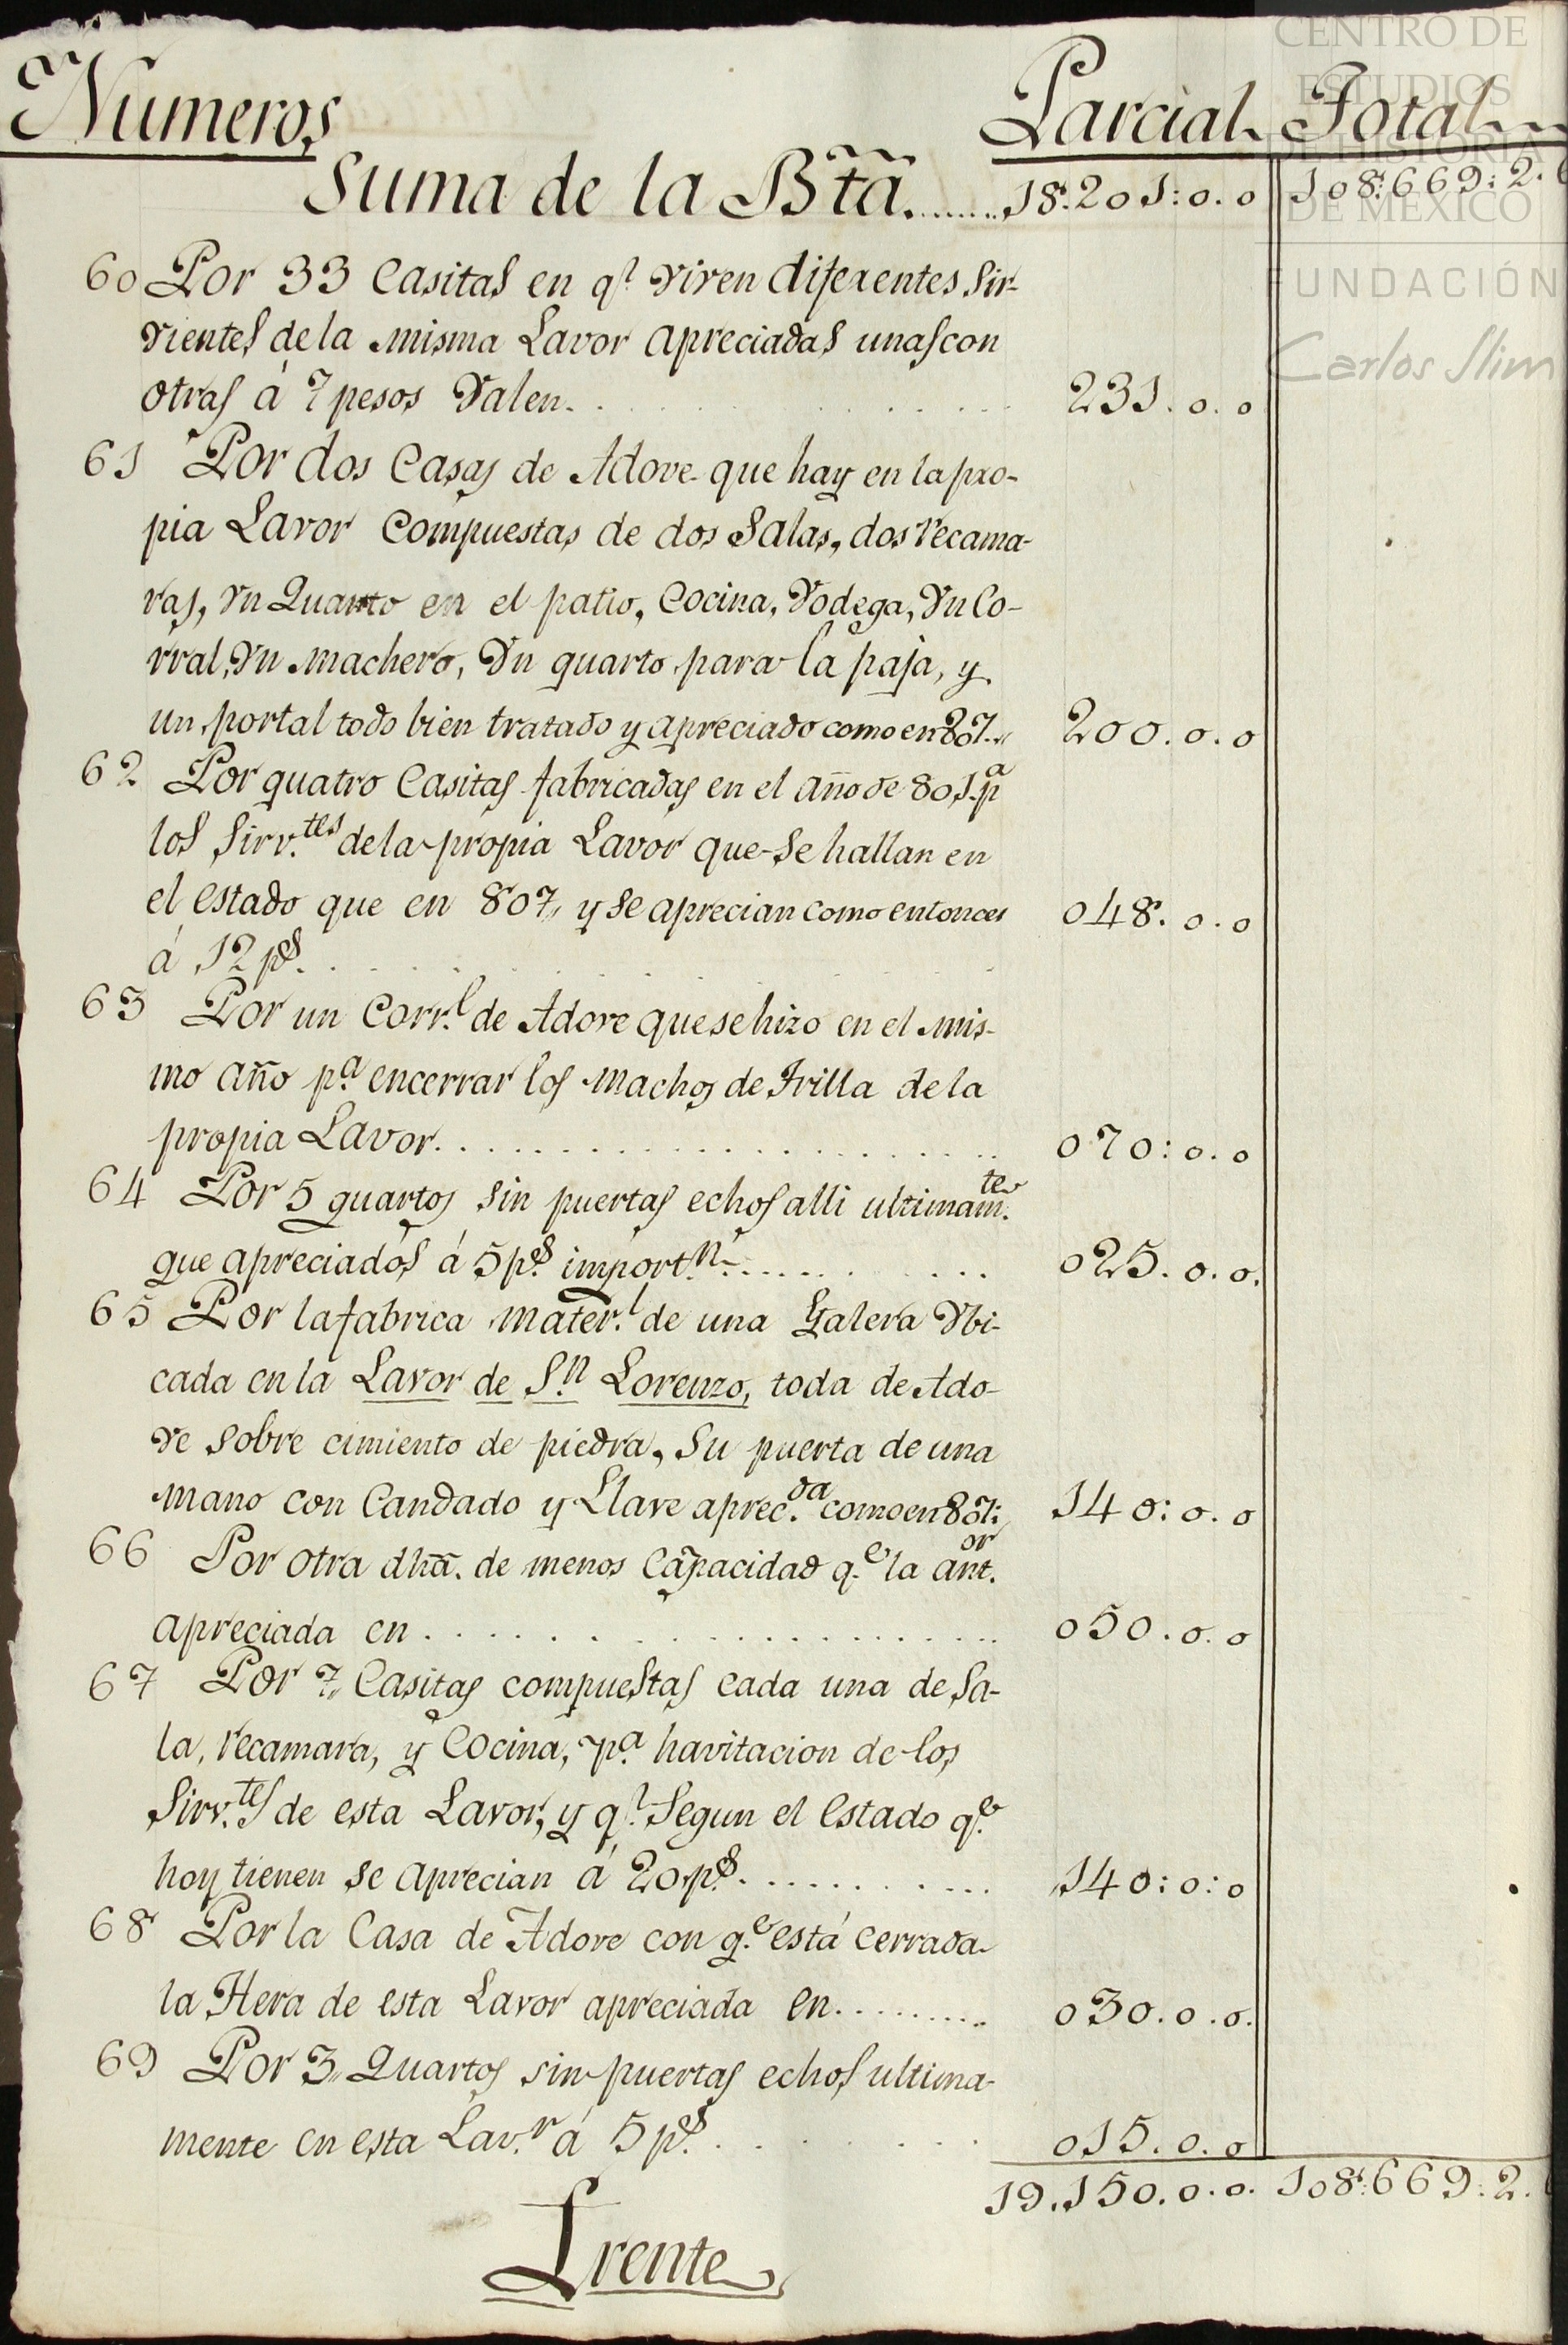 CENTRO DE
ESTUDIOS
DE HISTORIA
DE MÉXICO
FUNDACIÓN
Carlos Slim
Numeros Parcial Total
Suma de la B.ta 18.201:0.0 108:669:2.
60 Por 33 Casitas en q.e viven diferentes Sir-
vientes de la misma Lavor apreciadas unas con
otras á 7 pesos valen. 231.0.0
61 Por dos Casas de Adove que hay en la pro-
pia Lavor Compuestas de dos Salas, dos recama-
ras, vn Quarto en el patio, Cocina, Vodega, Vn Co-
rral, vn machero, Vn quarto para la paja, y
un portal todo bien tratado y apreciado como en 807.. 200.0.0
62 Por quatro Casitas fabricadas en el año de 801 p.a
los Sirv.tes de la propia Lavor que se hallan en
el estado que en 807,, y se aprecian como entonces 048.0.0
á 12 p.s
63 Por un Corr.l de Adove que se hizo en el mis-
mo año p.a encerrar los machos de trilla de la
propia Lavor 070:0.0
64 Por 5 quartos sin puertas echos alli ultimam.te
que apreciados á 5 p.s import.n 025.0.0.
65 Por la fabrica mater.l de una Galera Vbi-
cada en la Lavor de S.n Lorenzo, toda de Ado-
ve sobre cimiento de piedra, su puerta de una
mano con Candado y Llave aprec.da como en 807: 140:0.0
66 Por otra dha. de menos Capacidad q.e la ant.or
apreciada en 050.0.0
67 Por 7,, Casitas compuestas cada una de Sa-
la, recamara, y Cocina, p.a havitacion de los
Sirv.tes de esta Lavor, y q.e Segun el estado q.e
hoy tienen se aprecian á 20 p.s 140:0:0
68 Por la Casa de Adove con q.e está cerrada
la Hera de esta Lavor apreciada en 030.0.0.
69 Por 3,, Quartos sin puertas echos ultima-
mente en esta Lav.r á 5 p.s 015.0.0
19.150.0.0. 108:669:2.
Frente